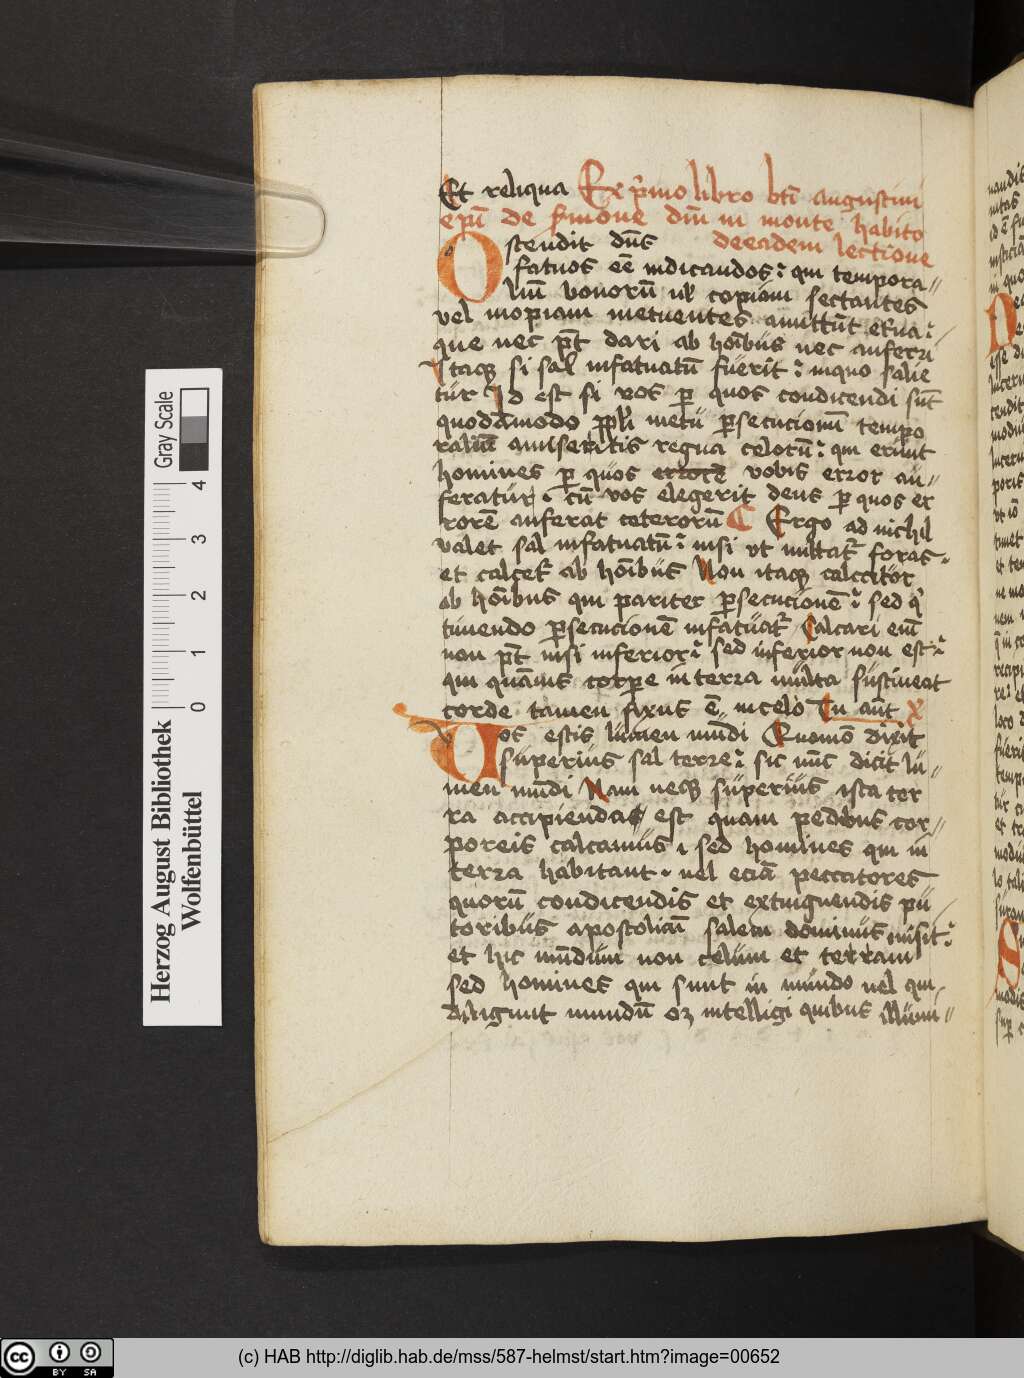 Et reliqua Ex p̄mo libro bt̄i augustini
ep̄i de s̄mone dn̄i in monte habito
Ostendit dn̄s de eadem lectione
fatuos eē iudicandos: qui tempora〃
liū bonorū ul̄ copiam sectantes
vel inopiam metuentes amittūt et̄na:
que nec pt̄ dari ab hoībus nec auferri
Itaqꝫ si sal infatuatū fuerit: inquo salie
tur Id est si vos ꝑ quos condicendi sūt
quodāmodo ppl̄i metu ꝑsecucionū tempo
raliū amiseritis regna celorū: qui erunt
homines ꝑ quos errorē vobis error au〃
feratur. cū vos elegerit deus ꝑ quos er
rorē auferat ceterorū Ergo ad nichil
valet sal infatuatū: nisi vt mittat᷑ foras.
et calcet᷑ ab hoībus Non itaqꝫ calcitur
ab hoībus qui pariter ꝑsecucionē: sed q̇
timendo ꝑsecucionē infatuat᷑ Calcari eīn
non pt̄ nisi inferior: sed inferior non est:
qui quāuis corpore in terra multa sustineat
corde tamen fixus ē in celo Tu aūt
Vos estis lumen mūdi Quomō dixit
superius sal terre: sic nūc dicit lu〃
men mūdi Nam neqꝫ superius ista ter
ra accipiendas est quam pedibus cor〃
poreis calcamus. sed homines qui in
terra habitant. uel eciā peccatores
quorū condicendis et extinguendis pu
toribus apostolicū salem dominus misit:
et hic mūdum non celum et terram
sed homines qui sunt in mūndo uel qui
diligunt mundū oꝫ intelligi quibus illumi〃
Herzog August Bibliothek
Wolfenbüttel
Gray Scale
0 1 2 3 4
cc BY SA
(c) HAB http://diglib.hab.de/mss/587-helmst/start.htm?image=00652